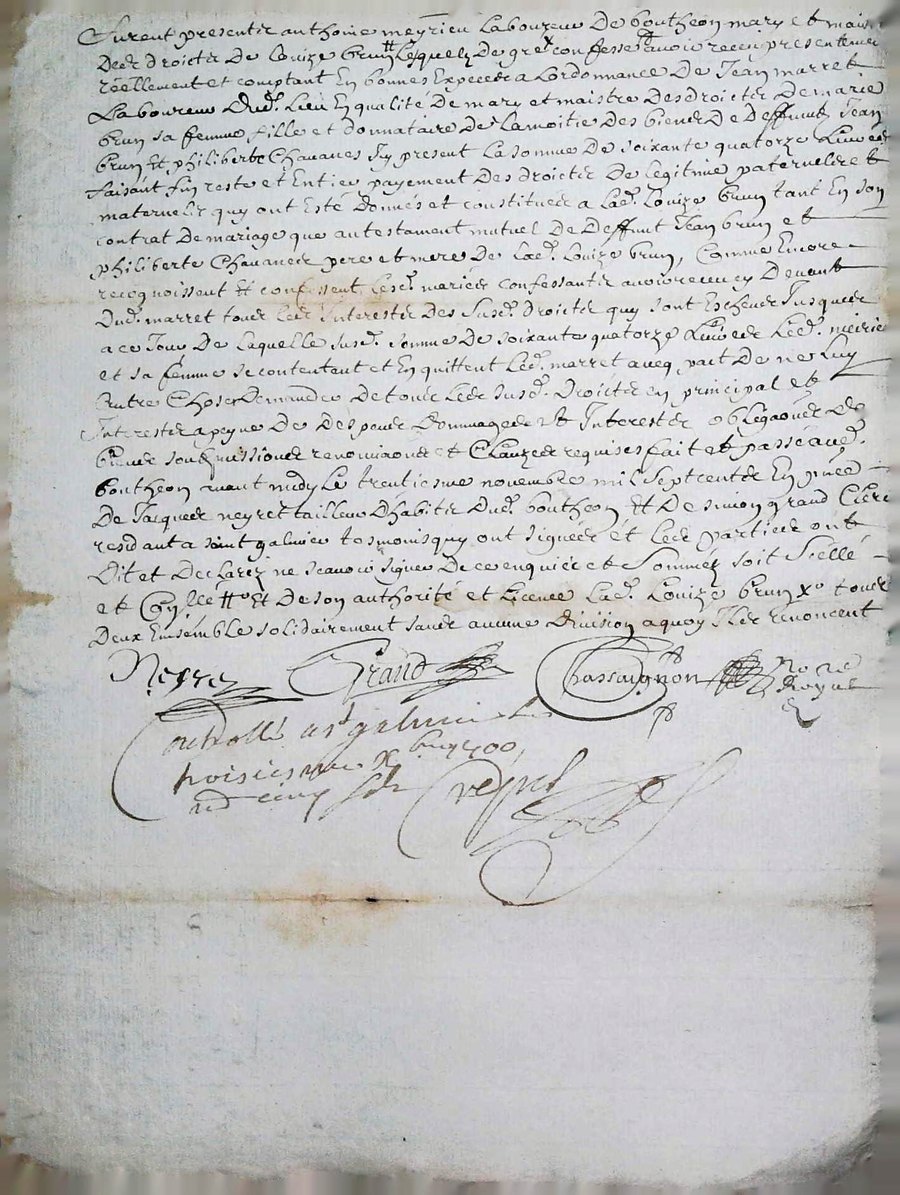 furent presents anthoine meyrieu Laboureur De boutheon mary et mais
Des droicts de Louize brun Lesquelz De gre confesse avoir receu presentement
réellement et comptant En bonnes Especes a Lordonnance De Jean marret
Laboureur Dud. Lieu En qualité De mary et maistre Des droicts De marie
brun sa femme fille et donnataire de La moitié Des biens De Deffunts Jean
brun Et philiberte Chavanes Icy present La somme De soixante quatorze Livres
faisant fin reste et Entier payement Des droicts De Legitime paternelz et
maternelz quy ont Esté Donnés et constitués a Lad. Louize brun tant En son
contrat De mariage que au testament mutuel De Deffunt Jean brun et
philiberte Chavanes pere et mere De Lad. Louize brun, Comme Encore
recognoissent Et confessent Lesd. mariés confessants avoir receu cy Devant
Dud. marret tous Les Interests Des Susd. Droicts quy sont Escheus Jusques
a ce Jour De Laquelle susd. somme De soixante quatorze Livres Led. meirieu
et sa femme se contentant et En quittent Led. marret avec pact De ne Luy
Autre Chose Demander De tous Les susd. Droicts En principal et
Interests a peyne De Despens Dommages Et Interests obligaons De
biens soubmissions renonciaons et Clauzes requises fait et passé aud.
boutheon avant midy Le trentiesme novembre mil sept cents En pnce
De Jacques neyret tailleur Dhabits Dud. boutheon Et De simon grand Clerc
residant a saint galmier tesmoins quy ont signés et Les parties ont
Dit et Declarez ne scavoir signer De ce enquis et Sommés soit Scellé
et Conllé Et De son authorité et Licence Lad. Louize brun tous
Deux Ensemble solidairement sans aucune Division a quoy Ils renoncent
Neyret Grand Chassaignon No.re Royal
Controllé a st galmier le
troisiesme Xbre 1700
cinq sols Crespet